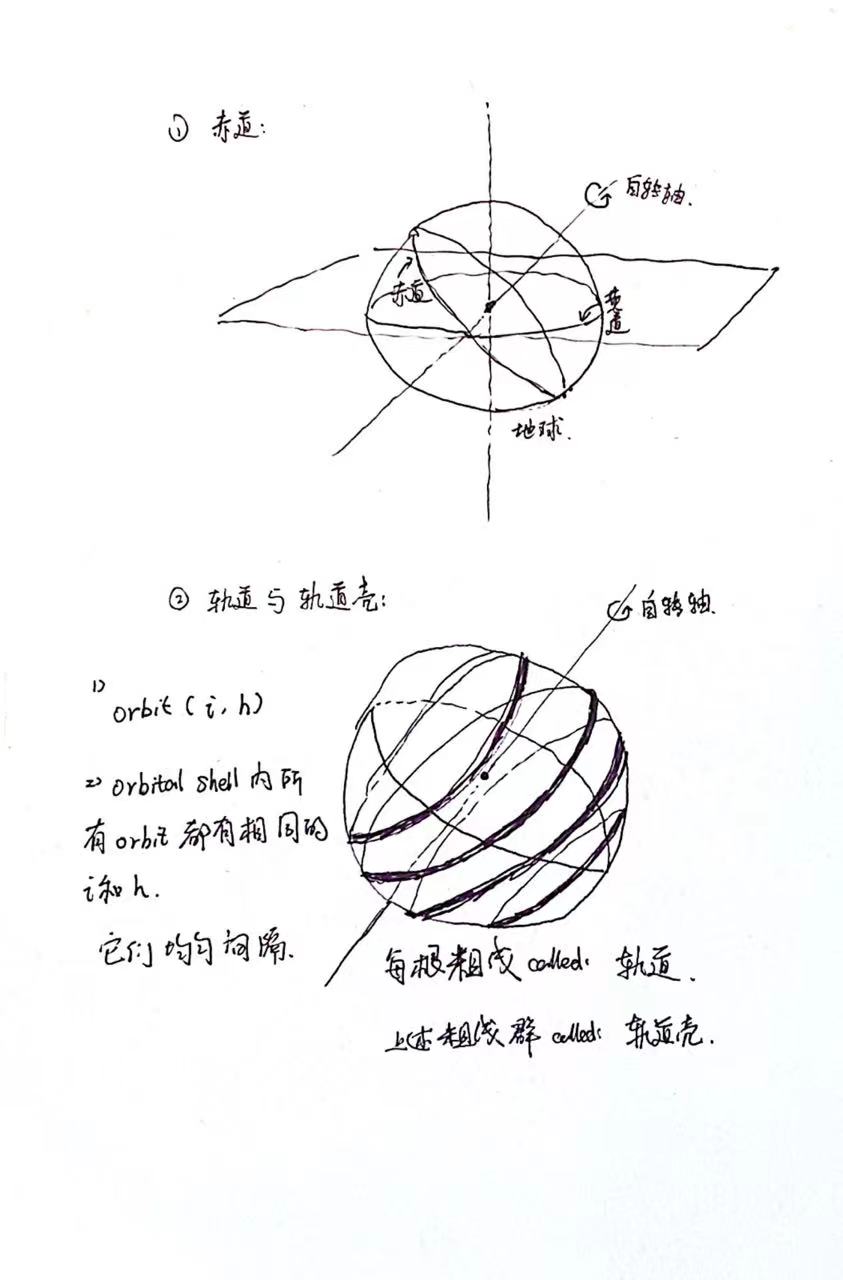 ① 赤道:
自转轴.
赤道
黄道
地球.
② 轨道与轨道壳:
自转轴.
1) orbit (i, h)
2) orbital shell 内所
有 orbit 都有相同的
i和 h.
它们均匀间隔.
每根粗线 called: 轨道.
上述粗线群 called: 轨道壳.